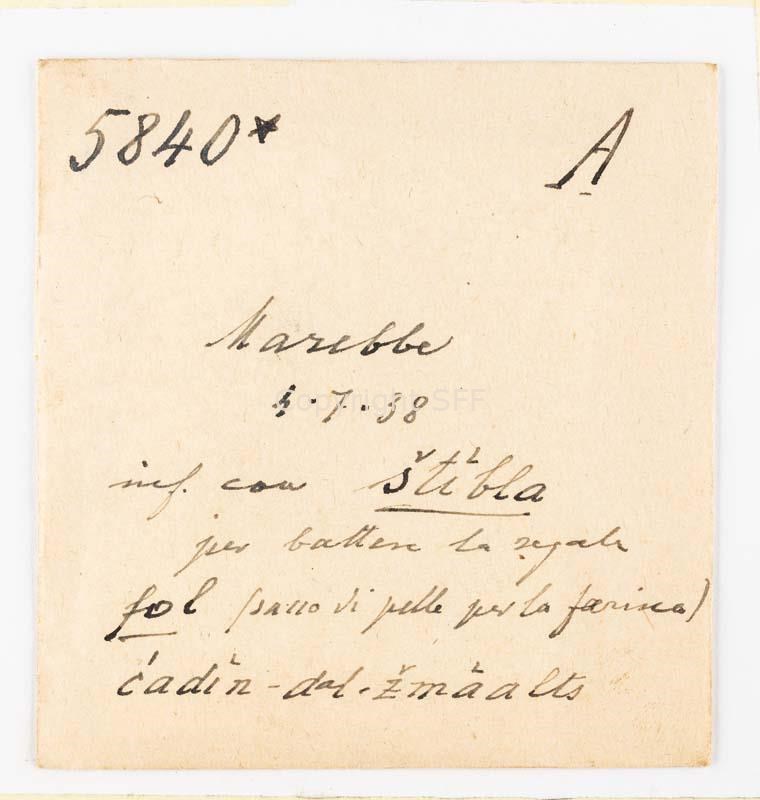 5840* A
Marebbe
4.7.38
inf. con štìbla
per battere la segale
fol (sacco di pelle per la farina)
ćadìn-dal-žmàalts
Copyright SFF